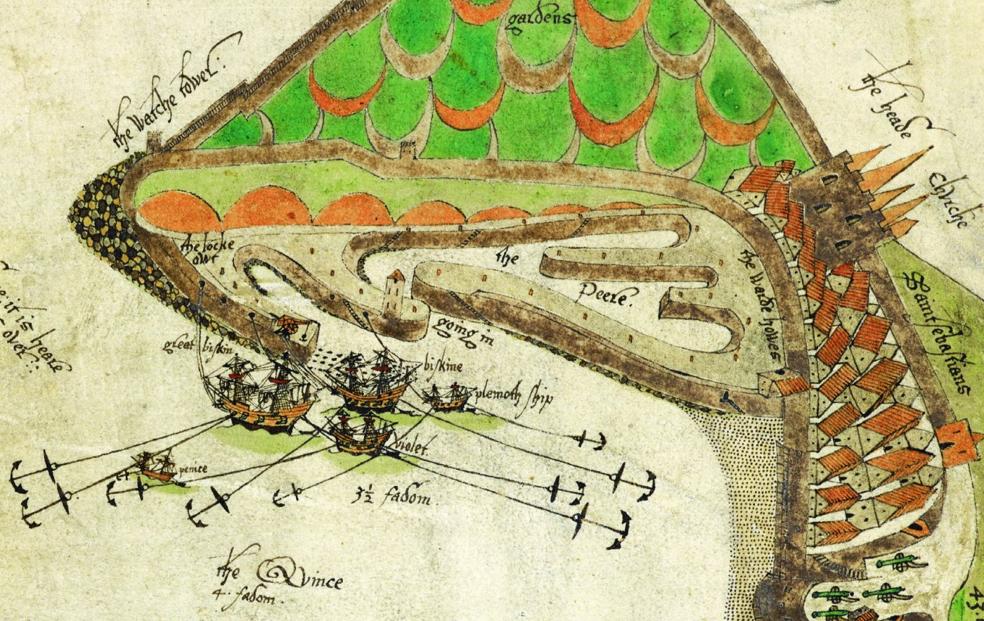 gardens
the Watche tower:
the heade
Chirche
the locke
over
the
Peere:
the Warde howses
Santsebastians
e it is heare
over
going in
great biskin
biskine
plemoth ship
violet
penice
3½ fadom.
the Qvince
4. fadom.
43